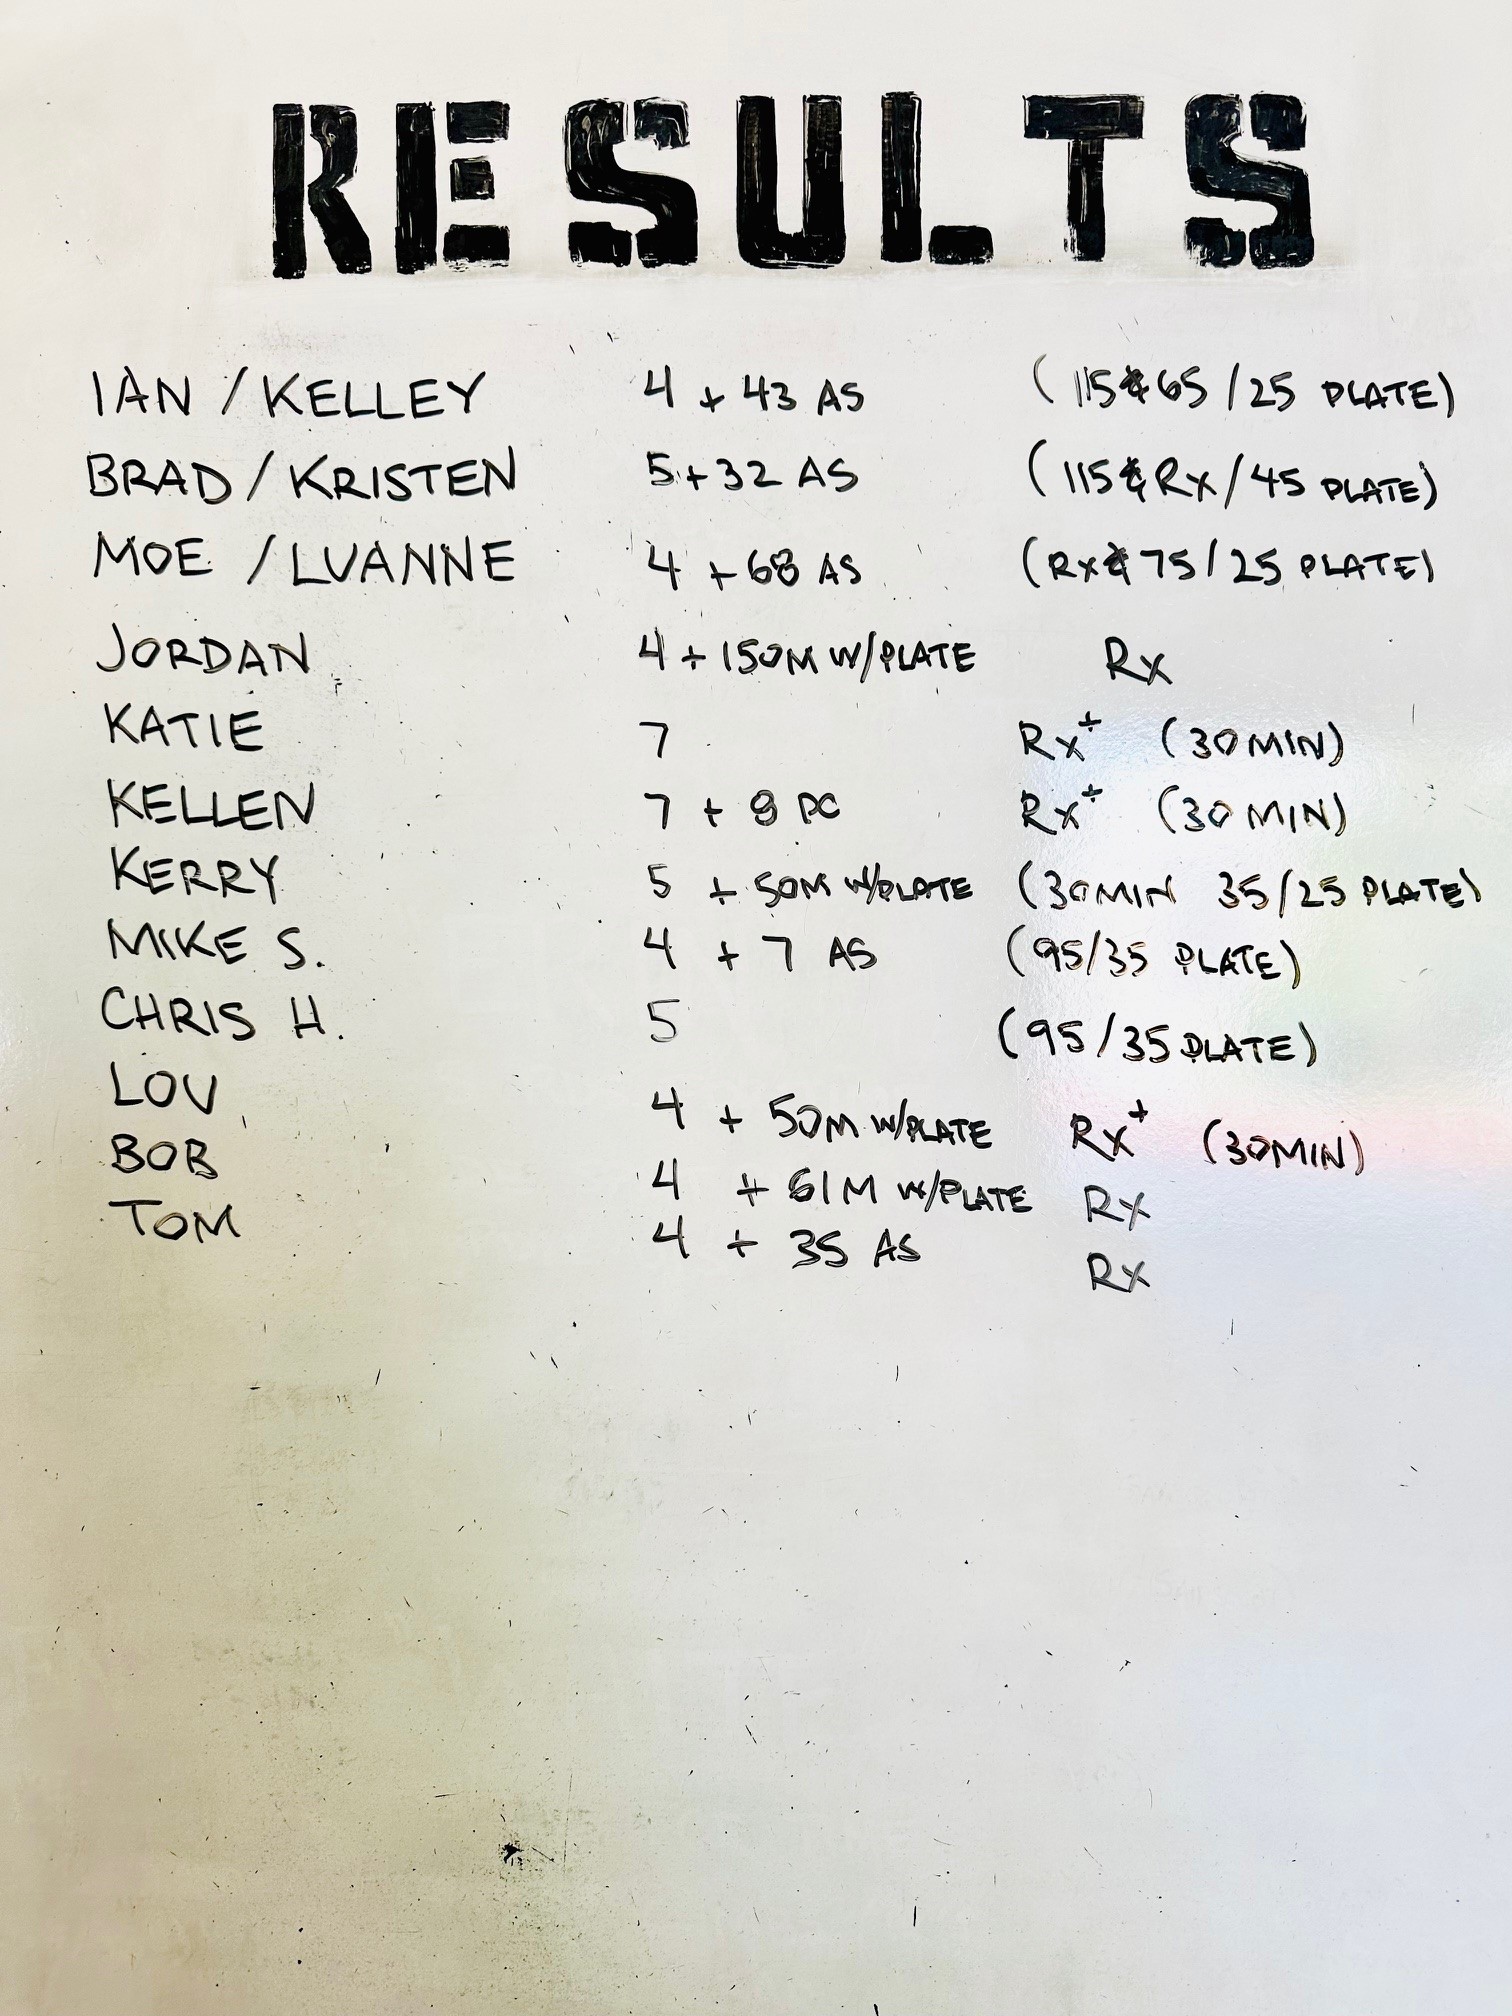 RESULTS
IAN / KELLEY 4 + 43 AS (115 & 65 / 25 PLATE)
BRAD / KRISTEN 5 + 32 AS (115 & Rx / 45 PLATE)
MOE / LUANNE 4 + 68 AS (Rx & 75 / 25 PLATE)
JORDAN 4 + 150M W/PLATE Rx
KATIE 7 Rx+ (30MIN)
KELLEN 7 + 8 PC Rx+ (30 MIN)
KERRY 5 + 50M W/PLATE (30MIN 35/25 PLATE)
MIKE S. 4 + 7 AS (95/35 PLATE)
CHRIS H. 5 (95/35 PLATE)
LOU 4 + 50M W/PLATE Rx+ (30MIN)
BOB 4 + 61M W/PLATE Rx
TOM 4 + 35 AS Rx